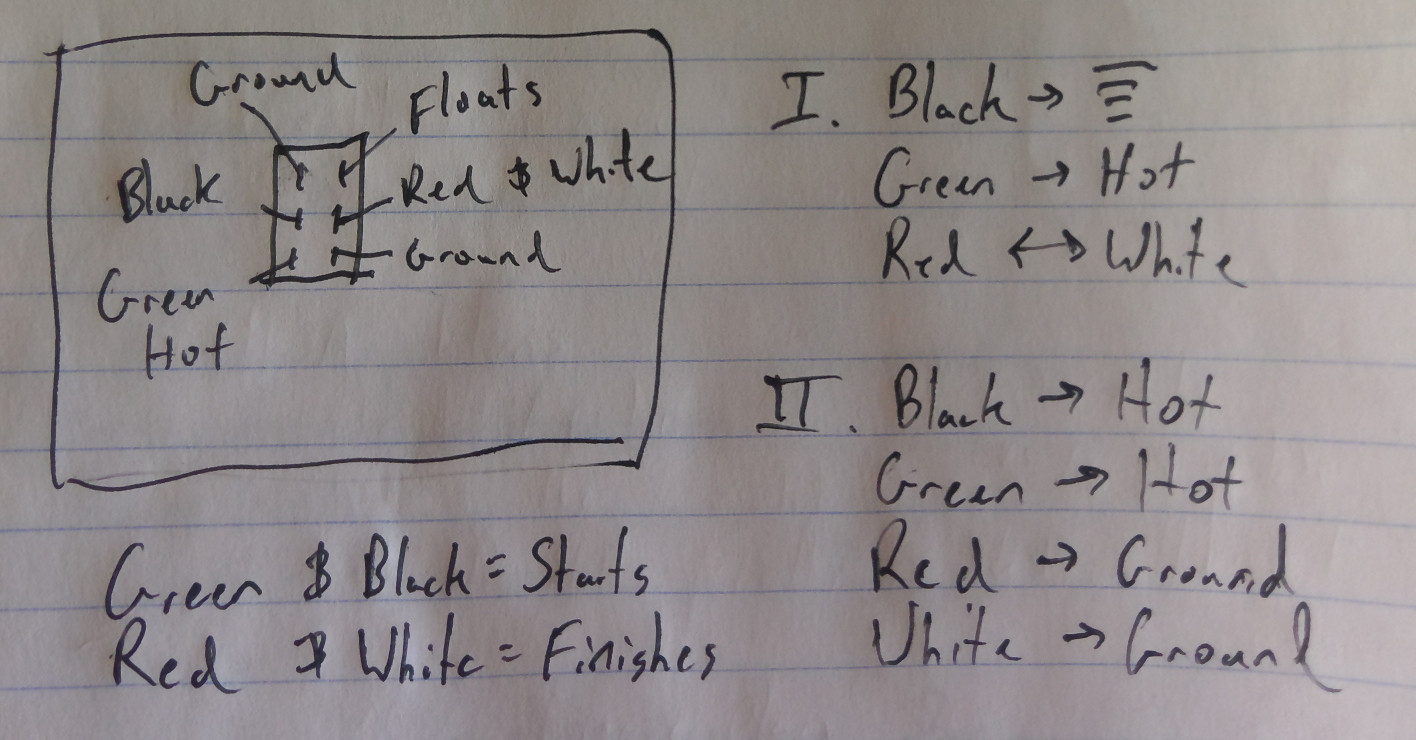 Ground
Floats
Black
Red & White
Ground
Green
Hot
Green & Black = Starts
Red & White = Finishes
I. Black → ⏚
Green → Hot
Red ↔ White
II. Black → Hot
Green → Hot
Red → Ground
White → Ground